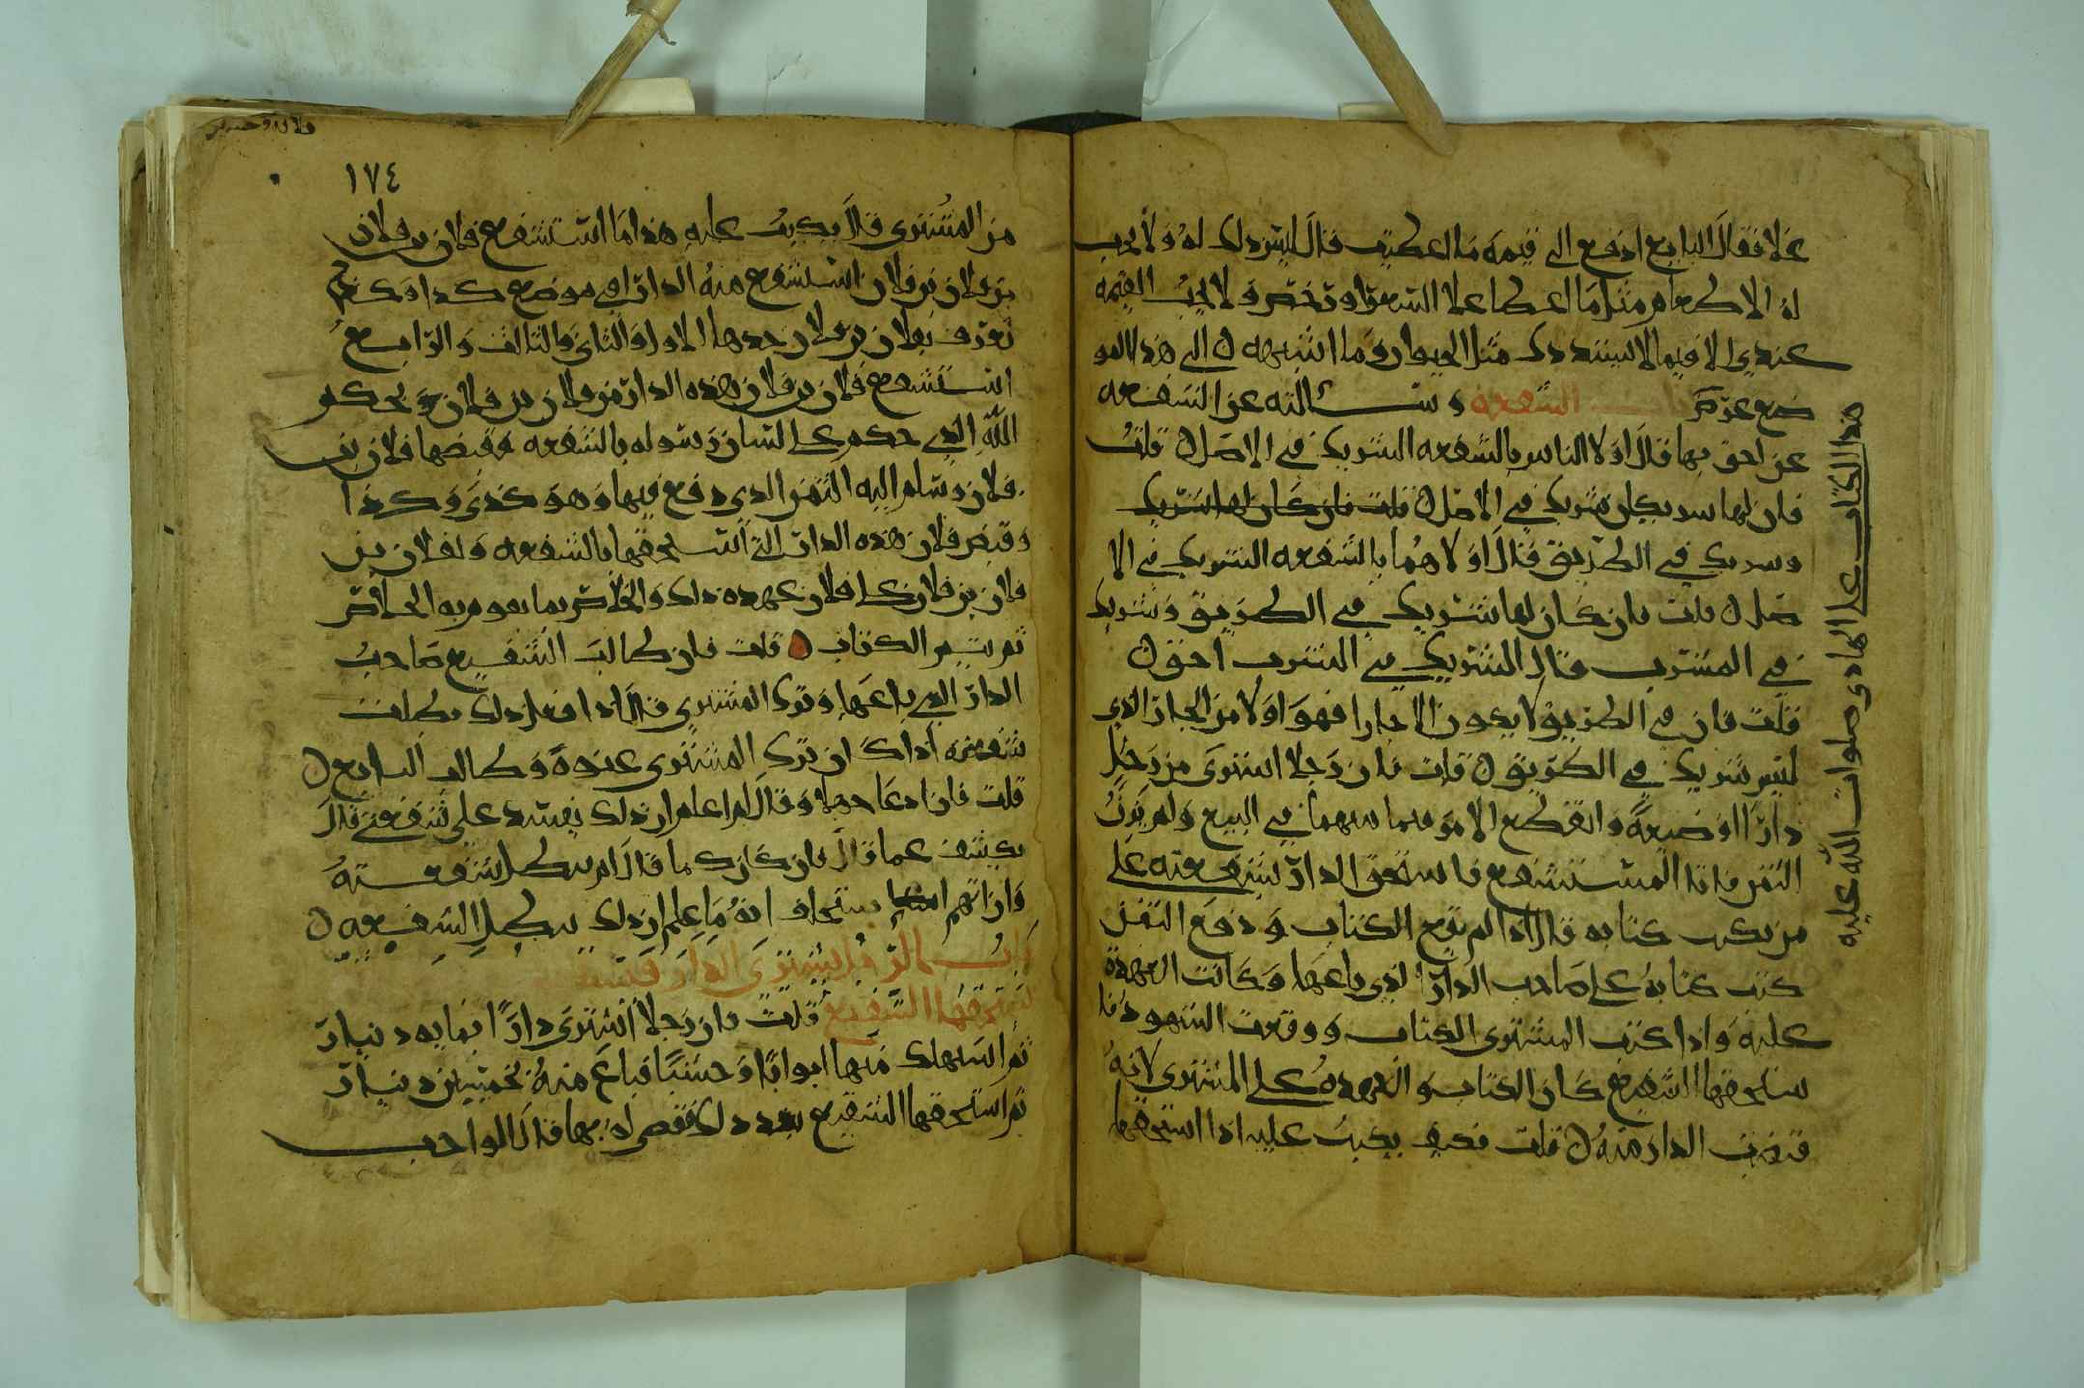 غلا فقال البايع ادفع الي قيمة ما اعطيتك قال ليس ذلك له ولا يجب
له الا طعام مثل ما اعطا غلا السعر او رخص ولا تجب القيمه
عندي الا فيما لا يستدرك مثل الحيوان وما اشبهه الى هذا المو
ضع عرض باب الشفعه وسالته عن الشفعه
عن احق بها قال اولا الناس بالشفعه الشريك في الاصل قلت
فان لها شريكان شريك في الاصل قلت فان كان لها شريك
وشريك في الطريق قال اولاهما بالشفعه الشريك في الا
صل قلت فان كان لها شريك في الطريق وشريك
في المشرب قال الشريك في الشرب احق
قلت فان في الطريق لا يكون الا جارا فهو اولا من الجار الذي
ليس شريك في الطريق قلت فان رجلا اشترى من رجل
دارا او ضيعة وانقطع الامر فيما بينهما في البيع ولم يزن
الثمن فاتا المستشفع فاستحق الدار بشفعته على
من يكتب كتابه قال اذا لم يقع الكتاب ودفع الثمن
كتب كتابه على صاحب الدار الذي باعها وكانت العهدة
عليه واذا كتب المشتري الكتاب ووقعت الشهود فا
ستحقها الشفيع كان الكتاب والعهده على المشتري لانه
قبضت الدار منه قلت فكيف يكتب عليه اذا استحقها
هذا الكتاب على الهادي صلوات الله عليه
١٧٤
من المشتري قال يكتب عليه هذا ما استشفع فلان بن فلان
من فلان بن فلان استشفع منه الدار التي موضع كذا وكذا
تعرف بفلان بن فلان حدها الاول والثاني والثالث والرابع
استشفع فلان بن فلان بهذه الدار من فلان بن فلان بحكم
الله الذي حكم على لسان رسوله بالشفعه وقبضها فلان بن
فلان وسلم اليه الثمن الذي دفع فيها وهو كذى وكذا
وقبض فلان هذه الدار التي استحقها بالشفعه ولفلان بن
فلان بن فلان على فلان عهدة ذلك والخلاص بما يقوم به الخلاص
ثم يتم الكتاب قلت فان طالب الشفيع صاحب
الدار التي باعها وترك المشتري قال اذا فعل ذلك بطلت
شفعته اذا كان ترك المشتري عنده وطالب البايع
قلت فان ادعا جهلا وقال لم اعلم ان ذلك يفسد علي شفعتي قال
يكشف عما قال فان كان كما قال لم تبطل شفعته
وان اتهم استحلف انه ما علم ان ذلك يبطل الشفعه
باب الرجل يشتري الدار
يستحقها الشفيع قلت فان رجلا اشترى دارا بمايه دينار
ثم استهلك منها ابوابا وخشبا فباع منه بخمسين دينار
ثم استحقها الشفيع بعد ذلك فقضي له بها قال الواجب